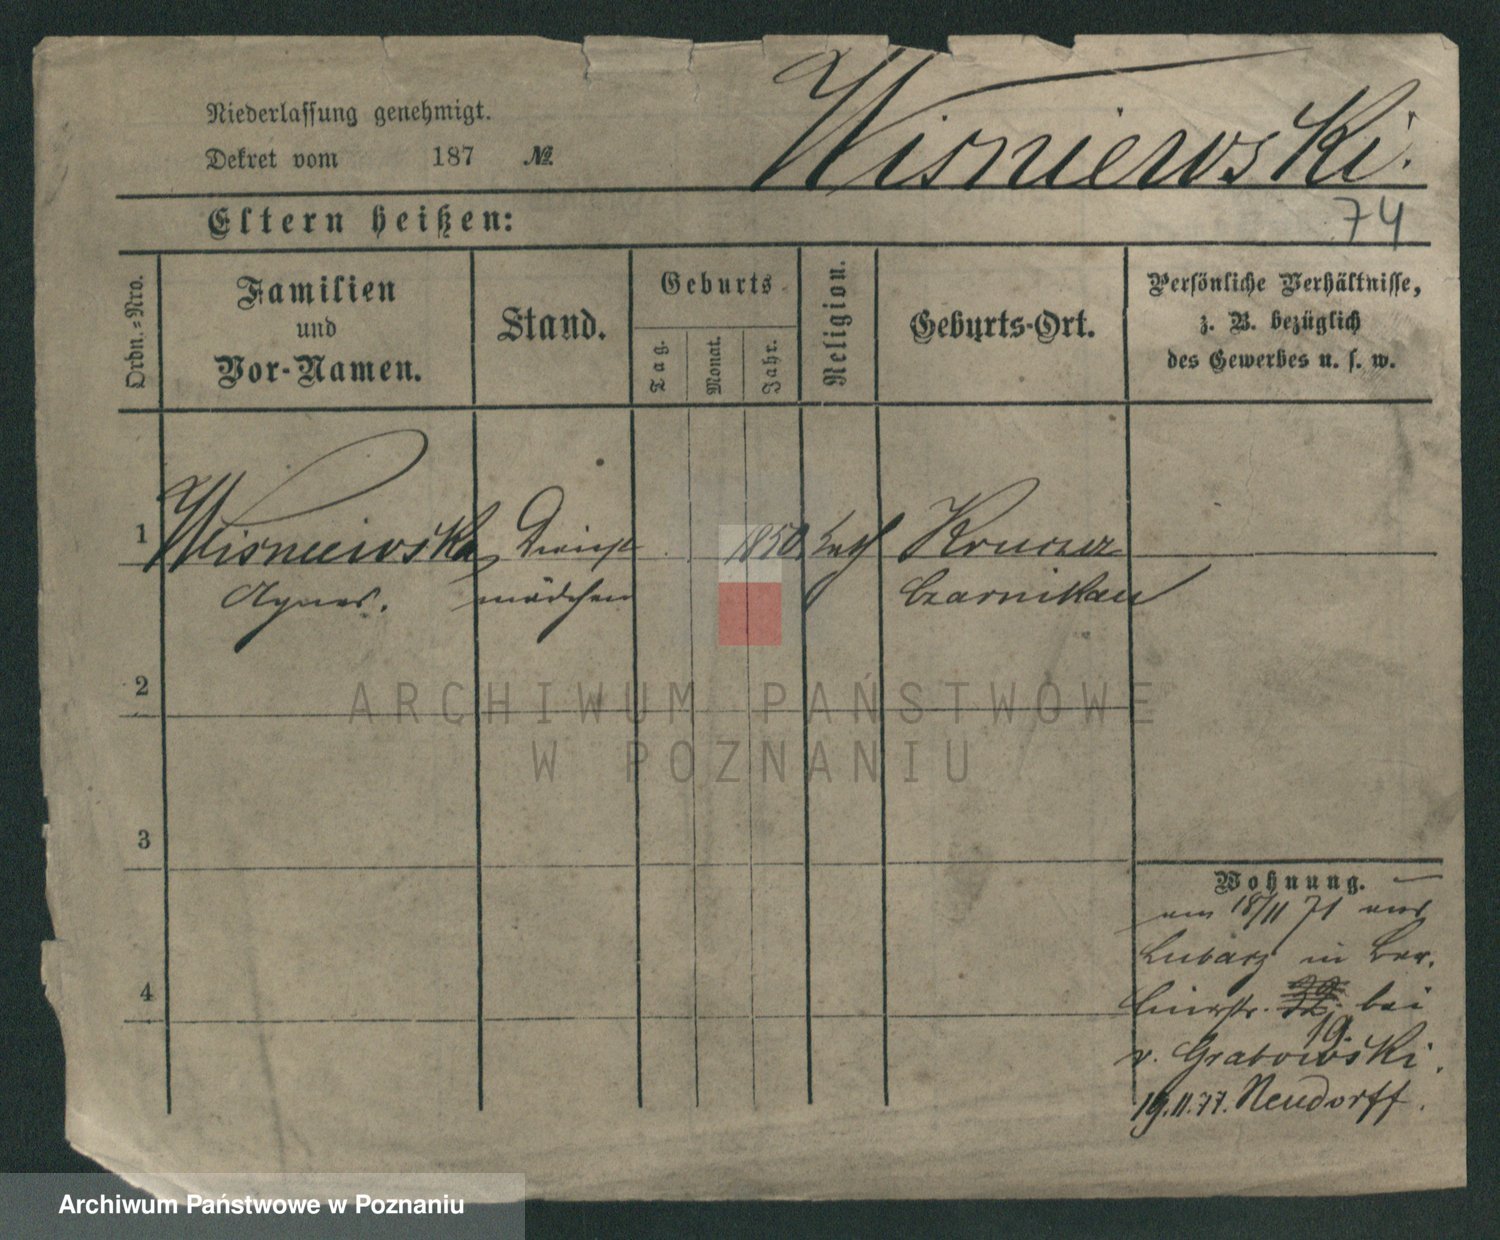 Niederlassung genehmigt.
Dekret vom 187 №
Wisniewski.
Eltern heißen:
74
Ordn.=Nro.
Familien
und
Vor-Namen.
Stand.
Geburts
Tag.
Monat.
Jahr.
Religion.
Geburts-Ort.
Persönliche Verhältnisse,
z. B. bezüglich
des Gewerbes u. s. w.
1 Wisniewska Dienst 1850 kath Kruszez
Agnes. mädchen Czarnikau
2
3
4
Wohnung.
am 18/11 71 aus
Lubarz in Ber.
linerstr. bei
19.
v. Grabowski.
19.11.77. Neudorff.
ARCHIWUM PAŃSTWOWE
W POZNANIU
Archiwum Państwowe w Poznaniu